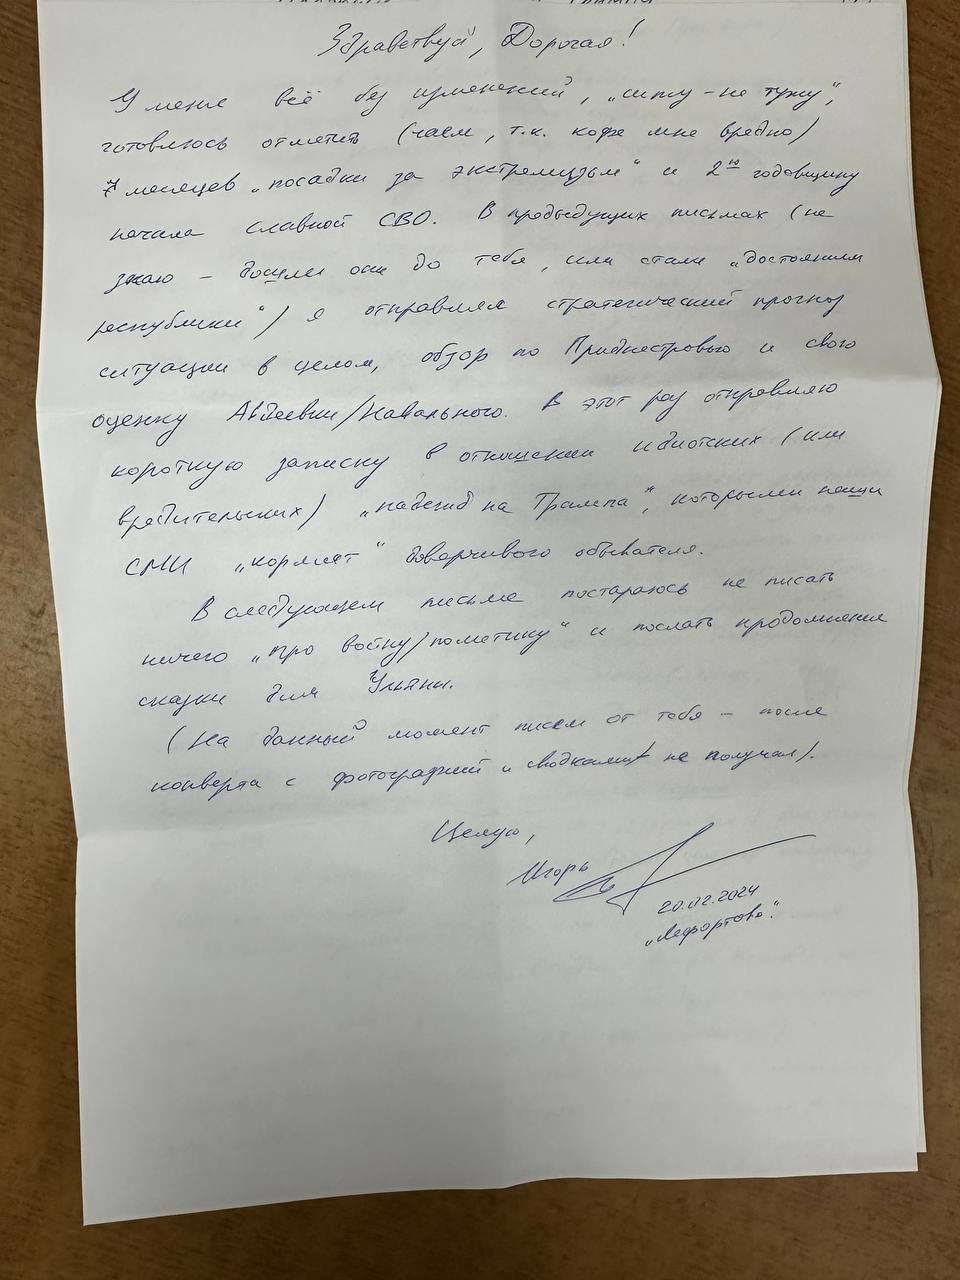 Здравствуй, Дорогая!
У меня всё без изменений, „сижу – не тужу“,
готовлюсь отметить (чаем, т.к. кофе мне вредно)
7 месяцев „посадки за экстремизм“ и 2ю годовщину
начала славной СВО. В предыдущих письмах (не
знаю – дошли они до тебя, или стали „достоянием
республики“) я отправлял стратегический прогноз
ситуации в целом, обзор по Приднестровью и свою
оценку Авдеевки/Навального. В этот раз отправляю
короткую записку в отношении идиотских (или
вредительских) „надежд на Трампа“, которыми наши
СМИ „кормят“ доверчивого обывателя.
В следующем письме постараюсь не писать
ничего „про войну/политику“ и послать продолжение
сказки для Ульяны.
(На данный момент писем от тебя – после
конверта с фотографией и сводками не получал).
Целую,
Игорь
20.02.2024
„Лефортово“.